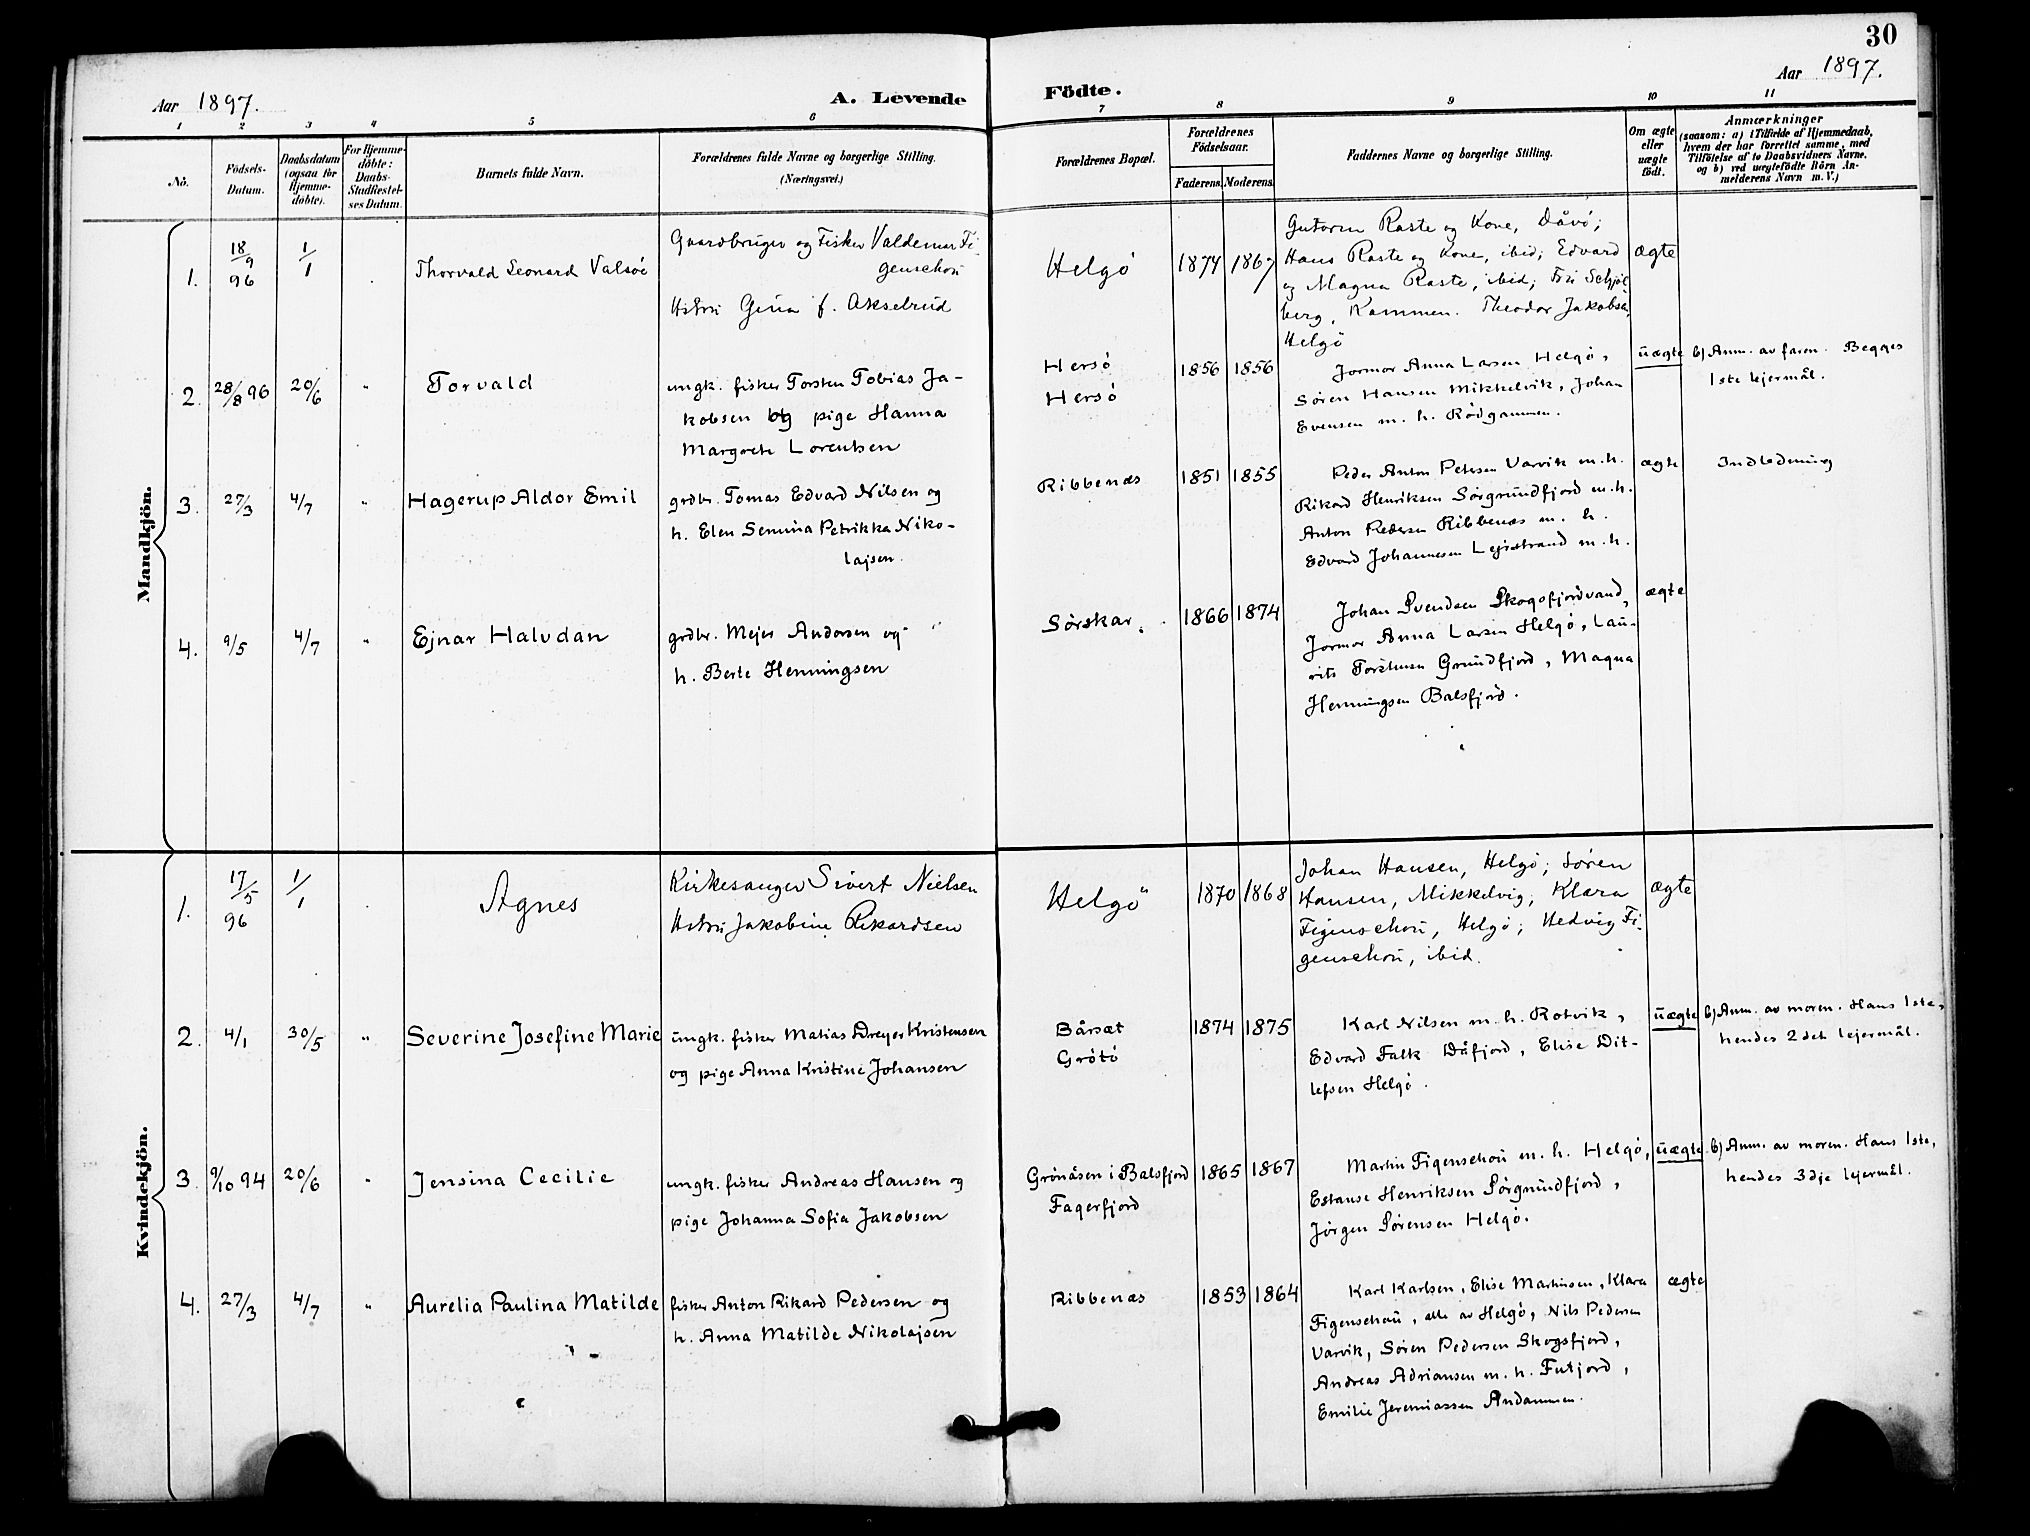 30
Aar 1897.
A. Levende
Födte.
Aar 1897.
1 2 3 4 5 6 7 8 9 10 11
No.
Födsels-
Datum.
Daabsdatum
(ogsaa for
Hjemme-
döbte).
For Hjemme-
döbte:
Daabs-
Stadfæstel-
ses Datum.
Barnets fulde Navn.
Forældrenes fulde Navne og borgerlige Stilling.
(Næringsvei.)
Forældrenes Bopæl.
Forældrenes
Födselsaar.
Faderens. Moderens.
Faddernes Navne og borgerlige Stilling.
Om ægte
eller
uægte
födt.
Anmærkninger
(saasom: a) i Tilfælde af Hjemmedaab,
hvem der har forrettet samme, med
Tilföielse af to Daabsvidners Navne,
og b) ved uægtefödte Börn An-
melderens Navn m. V.)
Mandkjön.
1. 18/9 96 1/1 Thorvald Leonard Valsöe
Gaardbruger og Fisker Valdemar Fi-
genschou
Hstru Gina f. Akselrud
Helgö 1874 1867
Guttorm Raste og Kone, Dåvö;
Hans Raste og Kone, ibid; Edvard
og Magna Raste, ibid; Fru Schjöl
berg, Kammen. Theodor Jakobsen,
Helgö
ægte
2. 28/8 96 20/6 " Torvald
ungk. fisker Torsten Tobias Ja-
kobsen og pige Hanna
Margrete Lorentsen
Hersö
Hersö
1856 1856
Jormor Anna Larsen Helgö,
Sören Hansen Mikkelvik, Johan
Evensen m. h. Rödgammen.
uægte
b) Anm. av faren. Begges
1ste lejermål.
3. 27/3 4/7 " Hagerup Aldor Emil
grdbr. Tomas Edvard Nilsen og
h. Elen Semina Petrikka Niko-
lajsen.
Ribbenæs 1851 1855
Peder Anton Petersen Varvik m. h.
Rikard Henriksen Sörgrundfjord m. h.
Anton Pedersen Ribbenæs m. h.
Edvard Johannesen Lejrstrand m. h.
ægte
Indledning
4. 9/5 4/7 " Ejnar Halvdan
grdbr. Mejer Andorsen og
h. Berte Henningsen
Sörskar. 1866 1874
Johan Svendsen Skogsfjordvand,
Jormor Anna Larsen Helgö, Lau-
rits Torstensen Grundfjord, Magna
Henningsen Balsfjord.
ægte
Kvindekjön.
1. 17/5 96 1/1 Agnes
Kirkesanger Sivert Nielsen
Hstru Jakobine Rikardsen
Helgö 1870 1868
Johan Hansen, Helgö; Sören
Hansen, Mikkelvig; Klara
Figenschou, Helgö; Hedvig Fi-
genschou, ibid.
ægte
2. 4/1 30/5 " Severine Josefine Marie
ungk. fisker Matias Dreyer Kristensen
og pige Anna Kristine Johansen
Bårsæt
Grötö
1874 1875
Karl Nilsen m. h. Rotvik,
Edvard Falk Dåfjord, Elise Dit-
lefsen Helgö.
uægte
b) Anm. av moren. Hans 1ste,
hendes 2det lejermål.
3. 9/10 94 20/6 " Jensina Cecilie
ungk. fisker Andreas Hansen og
pige Johanna Sofia Jakobsen
Grönåsen i Balsfjord
Fagerfjord
1865 1867
Martin Figenschou m. h. Helgö,
Estanse Henriksen Sörgrundfjord,
Jörgen Sörensen Helgö.
uægte
b) Anm. av moren. Hans 1ste,
hendes 3dje lejermål.
4. 27/3 4/7 " Aurelia Paulina Matilde
fisker Anton Rikard Pedersen og
h. Anna Matilde Nikolajsen
Ribbenæs 1853 1864
Karl Karlsen, Elise Martinsen, Klara
Figenschou, alle av Helgö, Nils Pedersen
Varvik, Sören Pedersen Skogsfjord,
Andreas Adriansen m. h. Futjord,
Emilie Jeremiassen Andammen.
ægte